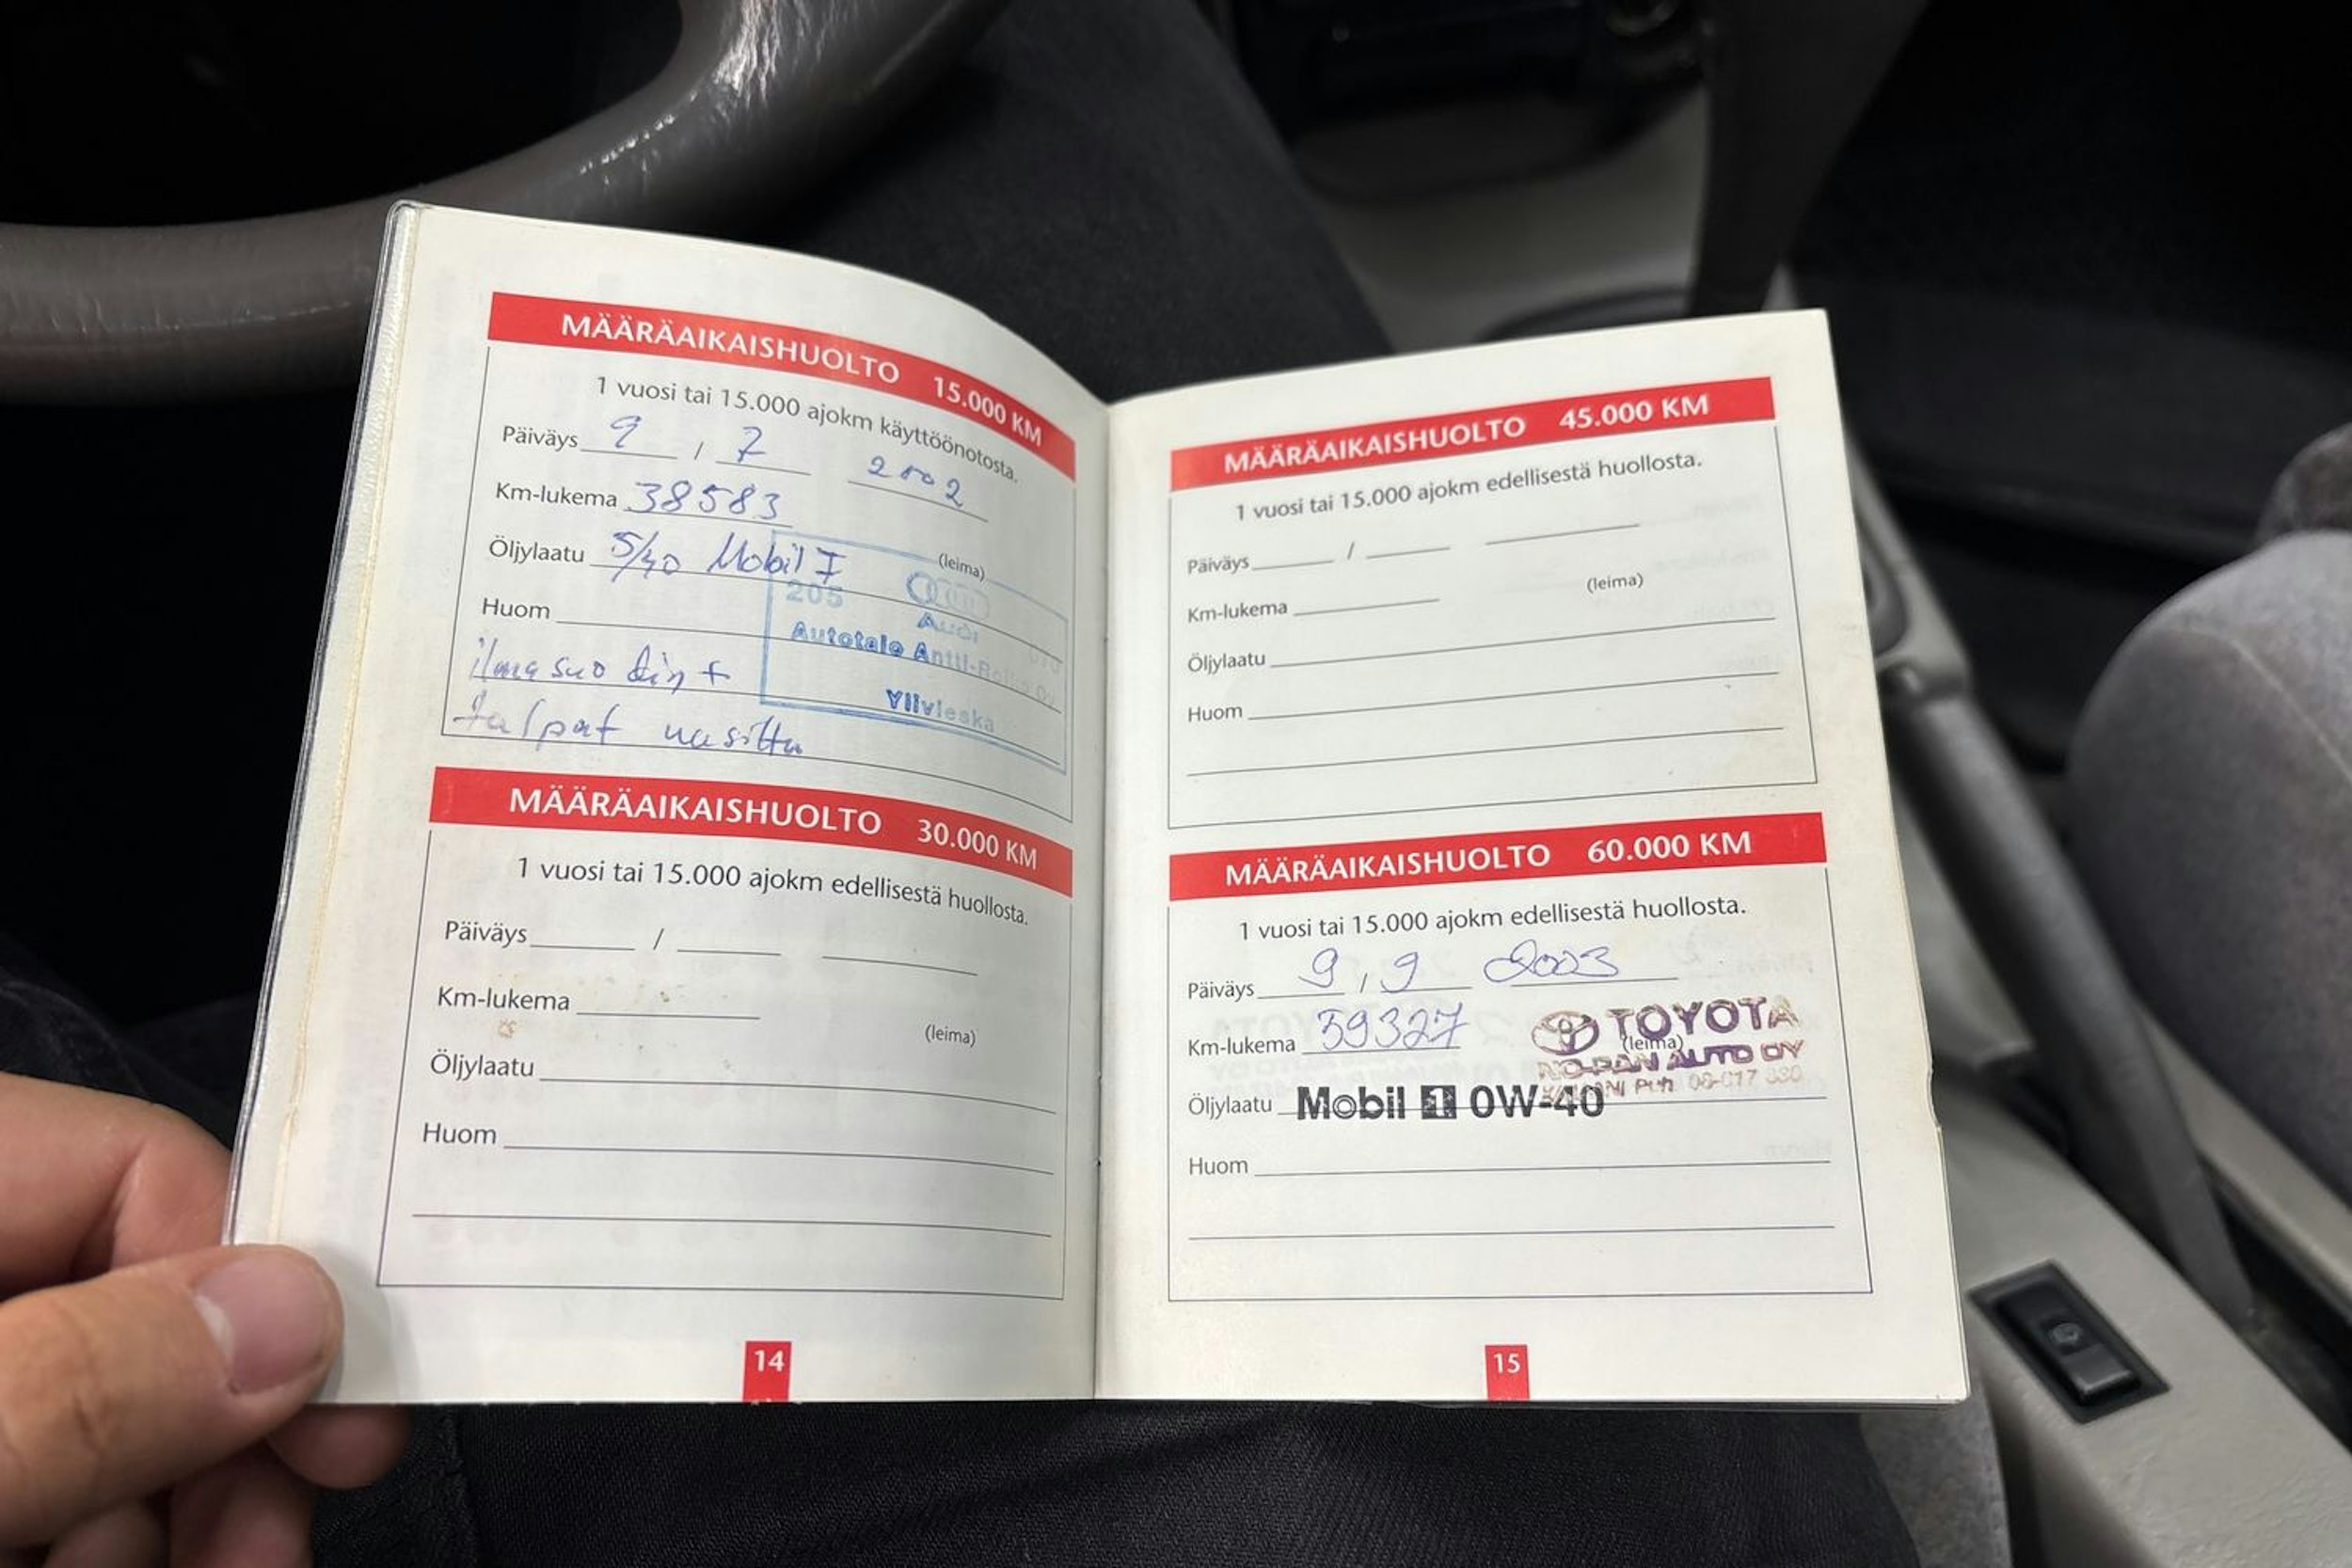 MÄÄRÄAIKAISHUOLTO 15.000 KM
1 vuosi tai 15.000 ajokm käyttöönotosta.
Päiväys 9 / 7 2002
Km-lukema 38583
(leima)
Öljylaatu 5/40 Mobil I
205
Audi
Huom
Autotalo Antti-
Ylivieska
ilmasuodin +
talpat uusittu
MÄÄRÄAIKAISHUOLTO 30.000 KM
1 vuosi tai 15.000 ajokm edellisestä huollosta.
Päiväys /
Km-lukema
(leima)
Öljylaatu
Huom
14
MÄÄRÄAIKAISHUOLTO 45.000 KM
1 vuosi tai 15.000 ajokm edellisestä huollosta.
Päiväys /
(leima)
Km-lukema
Öljylaatu
Huom
MÄÄRÄAIKAISHUOLTO 60.000 KM
1 vuosi tai 15.000 ajokm edellisestä huollosta.
Päiväys 9 / 9 2003
TOYOTA
Km-lukema 59327
(leima)
NO-PAN AUTO OY
Öljylaatu Mobil 1 0W-40
Huom
15